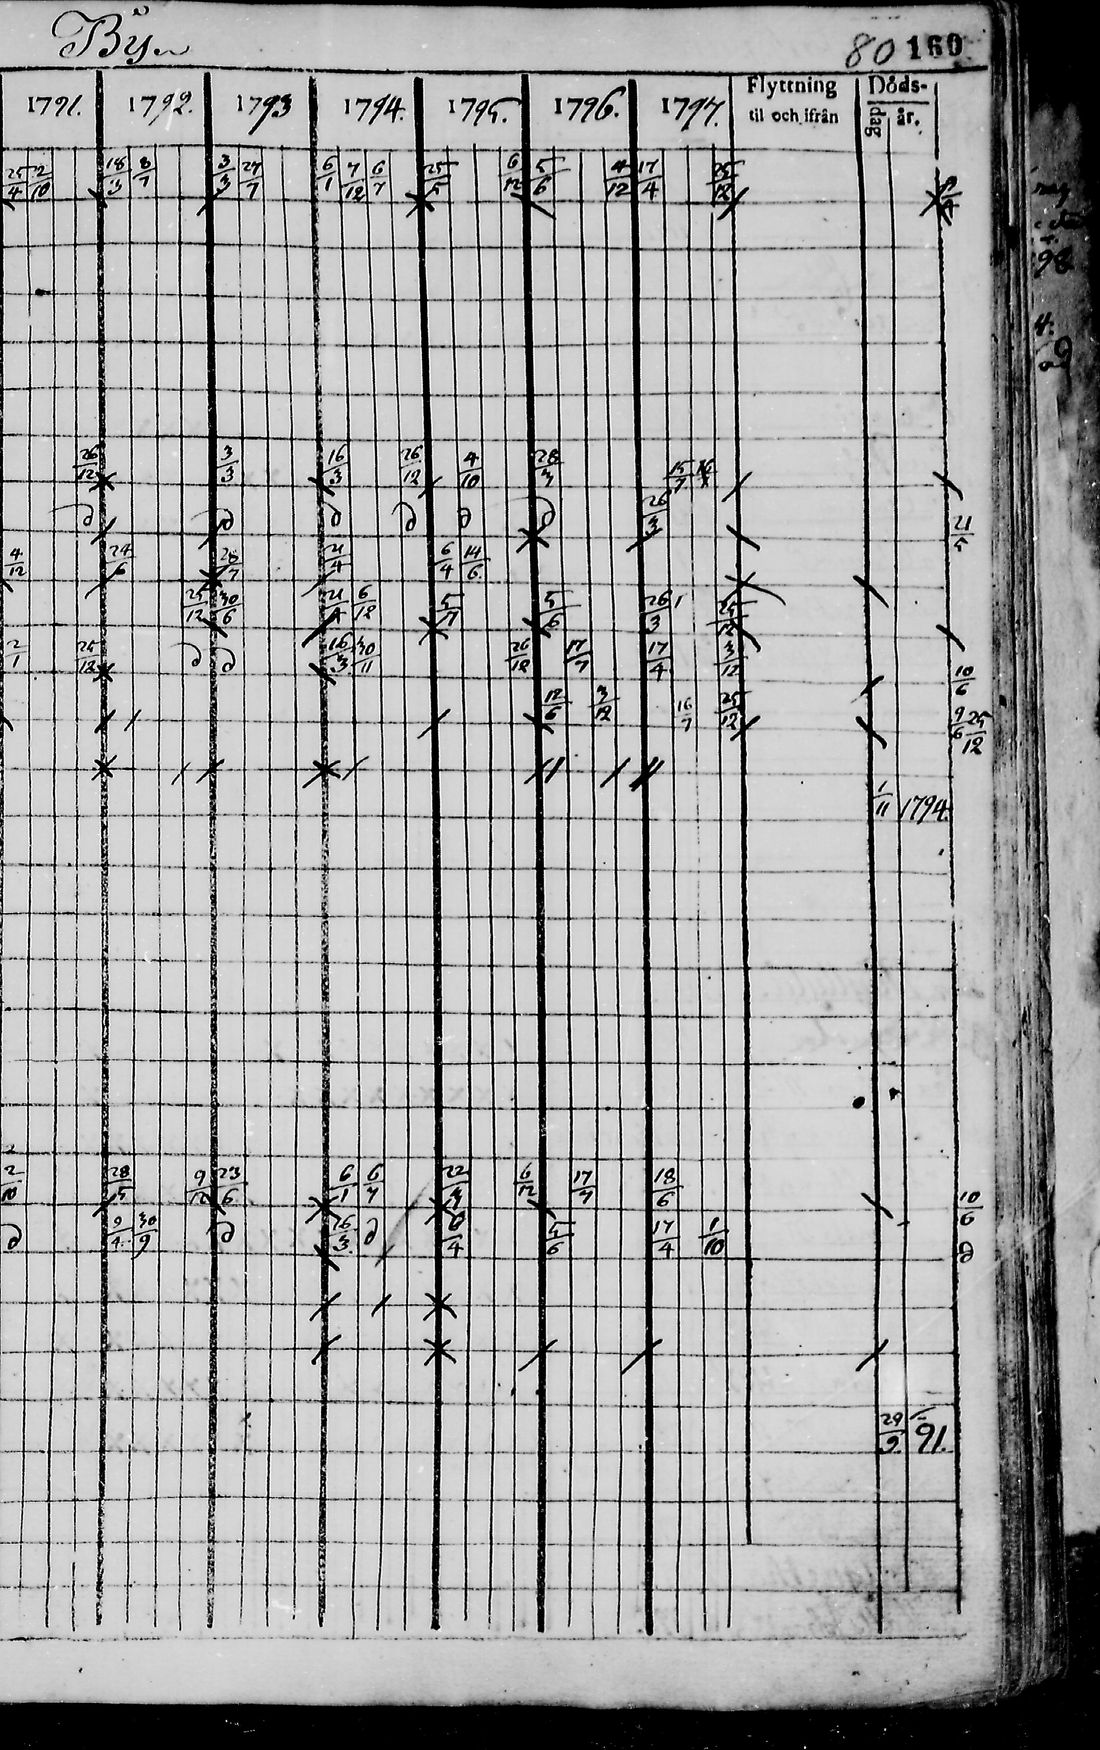 Bÿn
80 160
1791. 1792. 1793 1794. 1795. 1796. 1797. Flyttning til och ifrån Döds- dag år.
25/4 2/10 18/3 8/7 3/3 27/7 6/1 7/12 6/7 25/5 6/12 5/6 4/12 17/4 25/12
26/12 3/3 16/3 26/12 4/10 28/3 15/7
d d d d d d 26/3 21/5
4/12 24/6 28/7 21/4 6/4 14/6
25/12 30/6 21/4 6/12 5/7 5/6 26/3 25/12
2/1 25/12 d d 16/3 30/11 26/12 17/7 17/4 3/12 10/6
12/6 3/12 16/7 25/12 9/6 25/12
1/11 1794.
2/10 28/5 9/12 23/6 6/1 6/7 22/3 6/12 17/7 18/6 10/6
d 9/4 30/9 d 26/3 d 6/4 5/6 17/4 1/10 d
29/9 91.